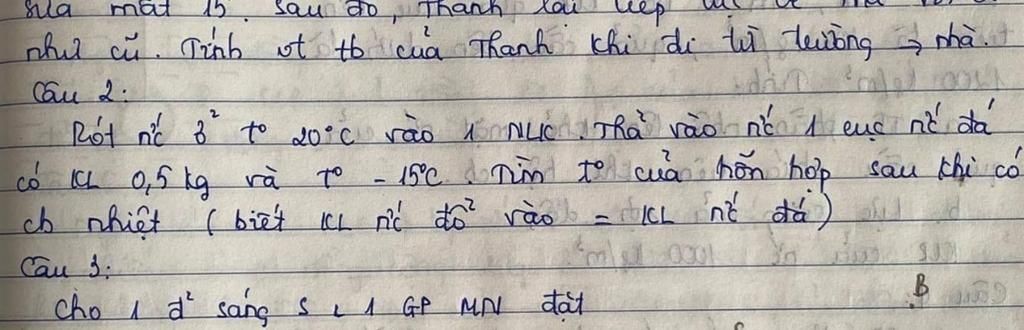 sửa mất 15'. Sau đó, Thanh lại tiếp tục
như cũ. Tính vt tb của Thanh khi đi từ trường → nhà.
Câu 2:
Rót nc ở t° 20°C vào 1 NLK. Thả vào nc 1 cục nc đá
có KL 0,5 kg và t° -15°C. Tìm t° của hỗn hợp sau khi có
cb nhiệt (biết KL nc đổ vào = KL nc đá)
Câu 3:
B
Cho 1 đ² sáng S & 1 GP MN đặt